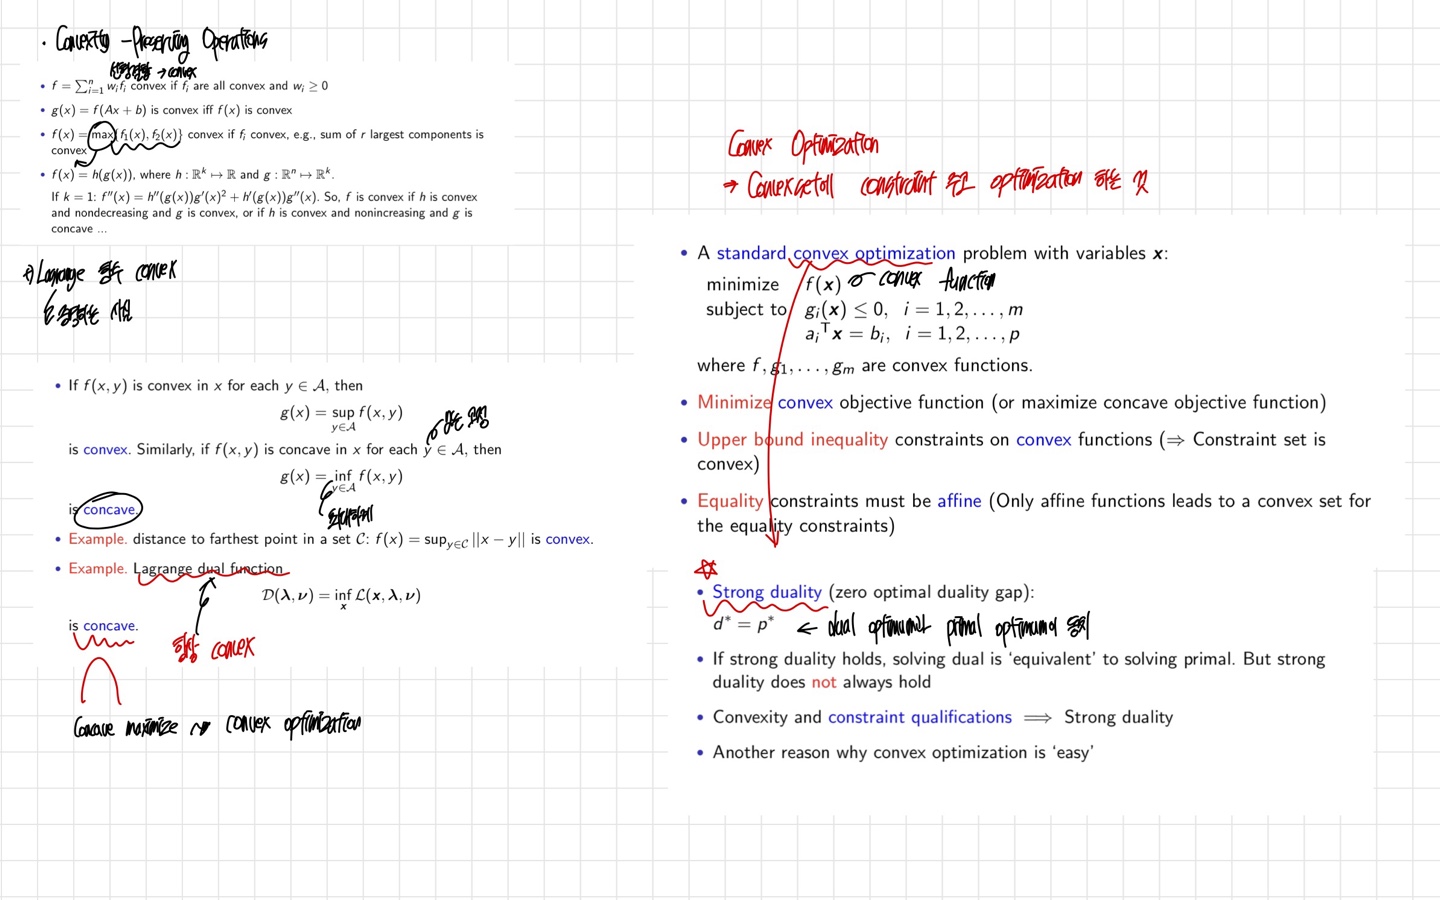 · Convexity - Preserving Operations
선형결합 → convex
• f = ∑ⁿᵢ₌₁ wᵢfᵢ convex if fᵢ are all convex and wᵢ ≥ 0
• g(x) = f(Ax + b) is convex iff f(x) is convex
• f(x) = max{f₁(x), f₂(x)} convex if fᵢ convex, e.g., sum of r largest components is
convex
• f(x) = h(g(x)), where h : ℝᵏ ↦ ℝ and g : ℝⁿ ↦ ℝᵏ.
If k = 1: f''(x) = h''(g(x))g'(x)² + h'(g(x))g''(x). So, f is convex if h is convex
and nondecreasing and g is convex, or if h is convex and nonincreasing and g is
concave ...
Lagrange 함수 convex
• If f(x, y) is convex in x for each y ∈ 𝒜, then
g(x) = sup f(x, y)
y∈𝒜
is convex. Similarly, if f(x, y) is concave in x for each y ∈ 𝒜, then
g(x) = inf f(x, y)
y∈𝒜
is concave.
• Example. distance to farthest point in a set 𝒞: f(x) = sup_{y∈𝒞} ||x − y|| is convex.
• Example. Lagrange dual function
𝒟(λ, ν) = inf ℒ(x, λ, ν)
x
is concave.
항상 convex
Concave maximize ~ convex optimization
Convex Optimization
→ Convex set에 constraint 주고 optimization 하는 것
• A standard convex optimization problem with variables x:
minimize f(x) convex function
subject to gᵢ(x) ≤ 0, i = 1, 2, . . . , m
aᵢᵀx = bᵢ, i = 1, 2, . . . , p
where f, g₁, . . . , gₘ are convex functions.
• Minimize convex objective function (or maximize concave objective function)
• Upper bound inequality constraints on convex functions (⇒ Constraint set is
convex)
• Equality constraints must be affine (Only affine functions leads to a convex set for
the equality constraints)
• Strong duality (zero optimal duality gap):
d* = p* ← dual optimum과 primal optimum이 동일
• If strong duality holds, solving dual is ‘equivalent’ to solving primal. But strong
duality does not always hold
• Convexity and constraint qualifications ⟹ Strong duality
• Another reason why convex optimization is ‘easy’